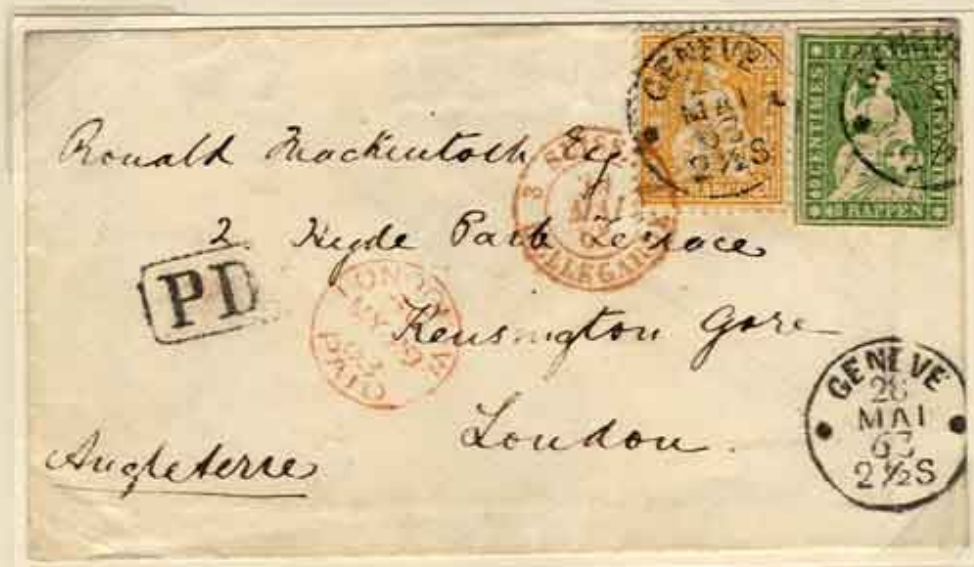 GENEVE
MAI
2½S
40 CENTIMES
RAPPEN
Ronald Mackintosh Esq
2 Hyde Park Terrace
Kensington Gore
London.
Angleterre
PD
MAI
BELLEGARDE
LONDON W
PAID
GENEVE
28
MAI
63
2½S